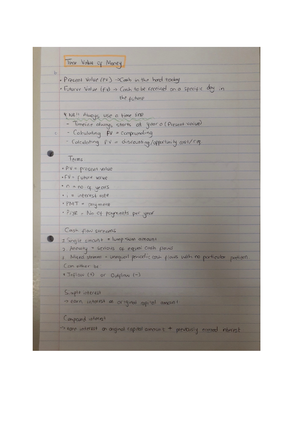 Time Value of Money
• Present Value (PV) → Cash in the hand today
• Future Value (FV) → Cash to be received on a specific day in
the future
* NB!! Always use a time line
- Timeline always starts at year 0 (Present value)
- Calculating FV = compounding
- Calculating PV = discounting/opportunity cost
Terms
• PV = present value
• FV = future value
• n = no of years
• i = interest rate
• PMT = payment
• P/YR = No of payments per year
Cash flow patterns
1. Single amount = lump sum amount
2. Annuity = series of equal cash flows
3. Mixed stream = unequal periodic cash flows with no particular pattern
Can either be
• Inflow (+) or Outflow (-)
Simple interest
→ earn interest on original capital amount
Compound interest
→ earn interest on original capital amount + previously earned interest